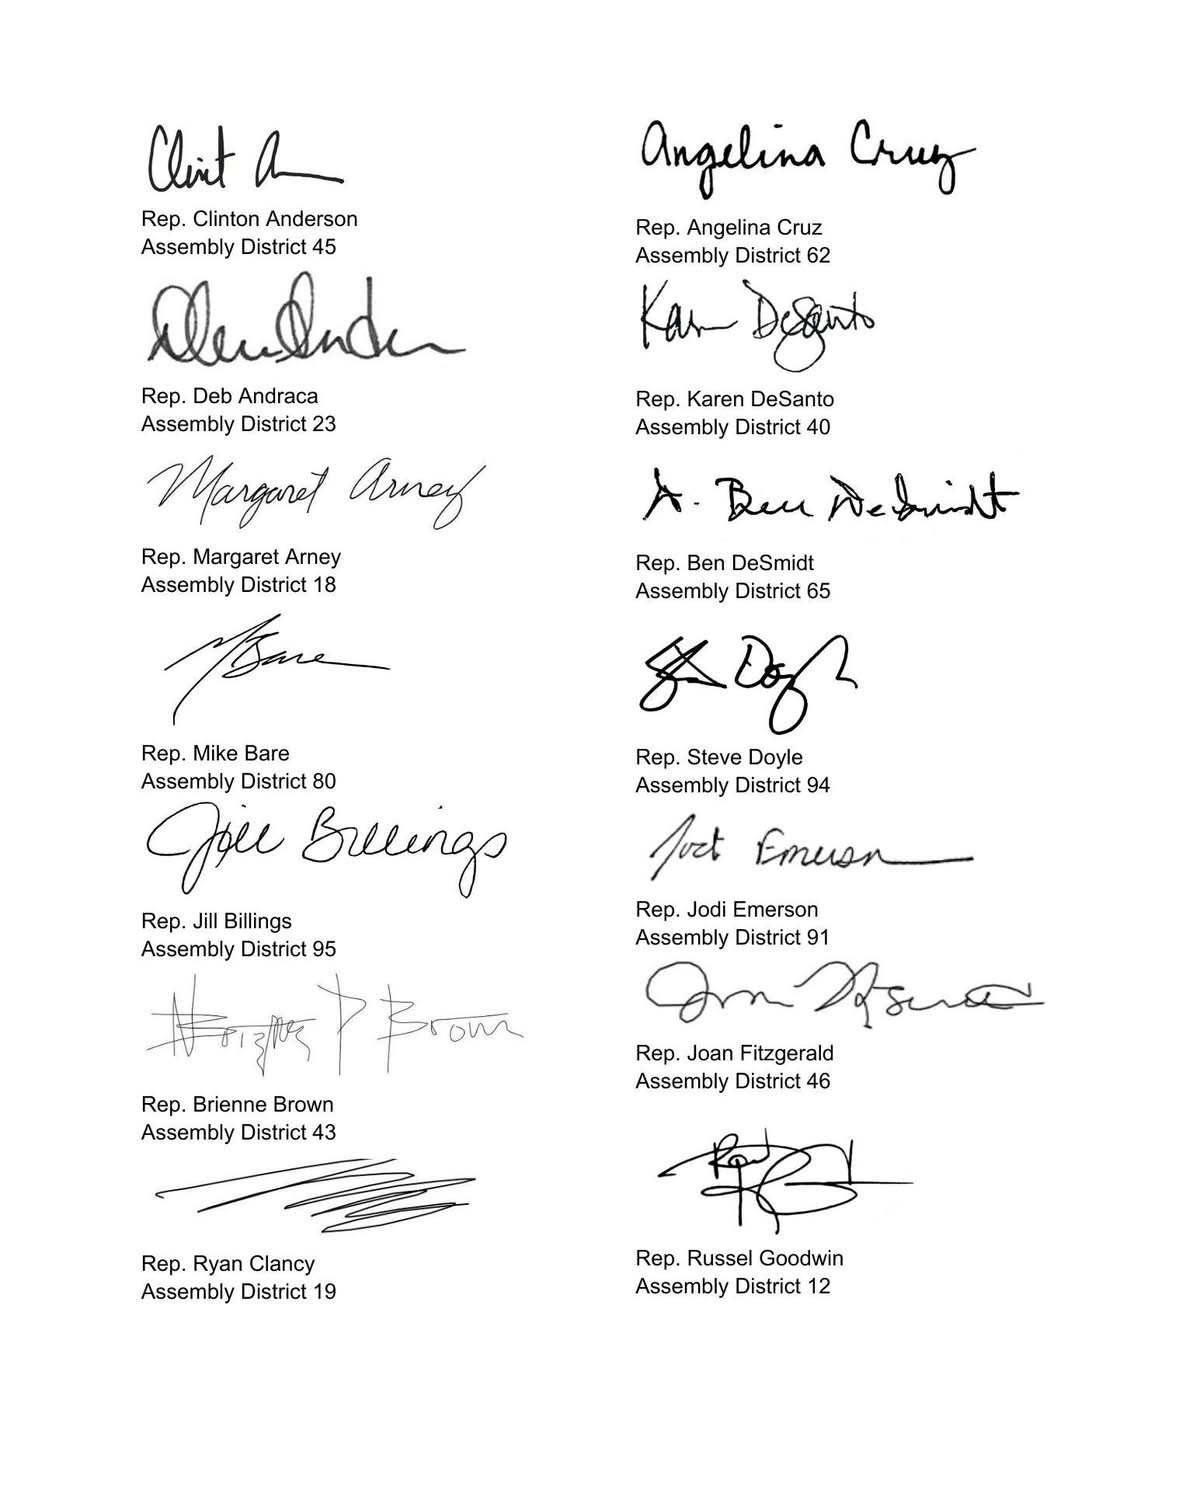 Clint A
Rep. Clinton Anderson
Assembly District 45
Rep. Deb Andraca
Assembly District 23
Margaret Arney
Rep. Margaret Arney
Assembly District 18
MBare
Rep. Mike Bare
Assembly District 80
Jill Billings
Rep. Jill Billings
Assembly District 95
Brown
Rep. Brienne Brown
Assembly District 43
Rep. Ryan Clancy
Assembly District 19
Angelina Cruz
Rep. Angelina Cruz
Assembly District 62
Karen DeSanto
Rep. Karen DeSanto
Assembly District 40
A. Ben DeSmidt
Rep. Ben DeSmidt
Assembly District 65
Rep. Steve Doyle
Assembly District 94
Jodi Emerson
Rep. Jodi Emerson
Assembly District 91
Rep. Joan Fitzgerald
Assembly District 46
Rep. Russel Goodwin
Assembly District 12